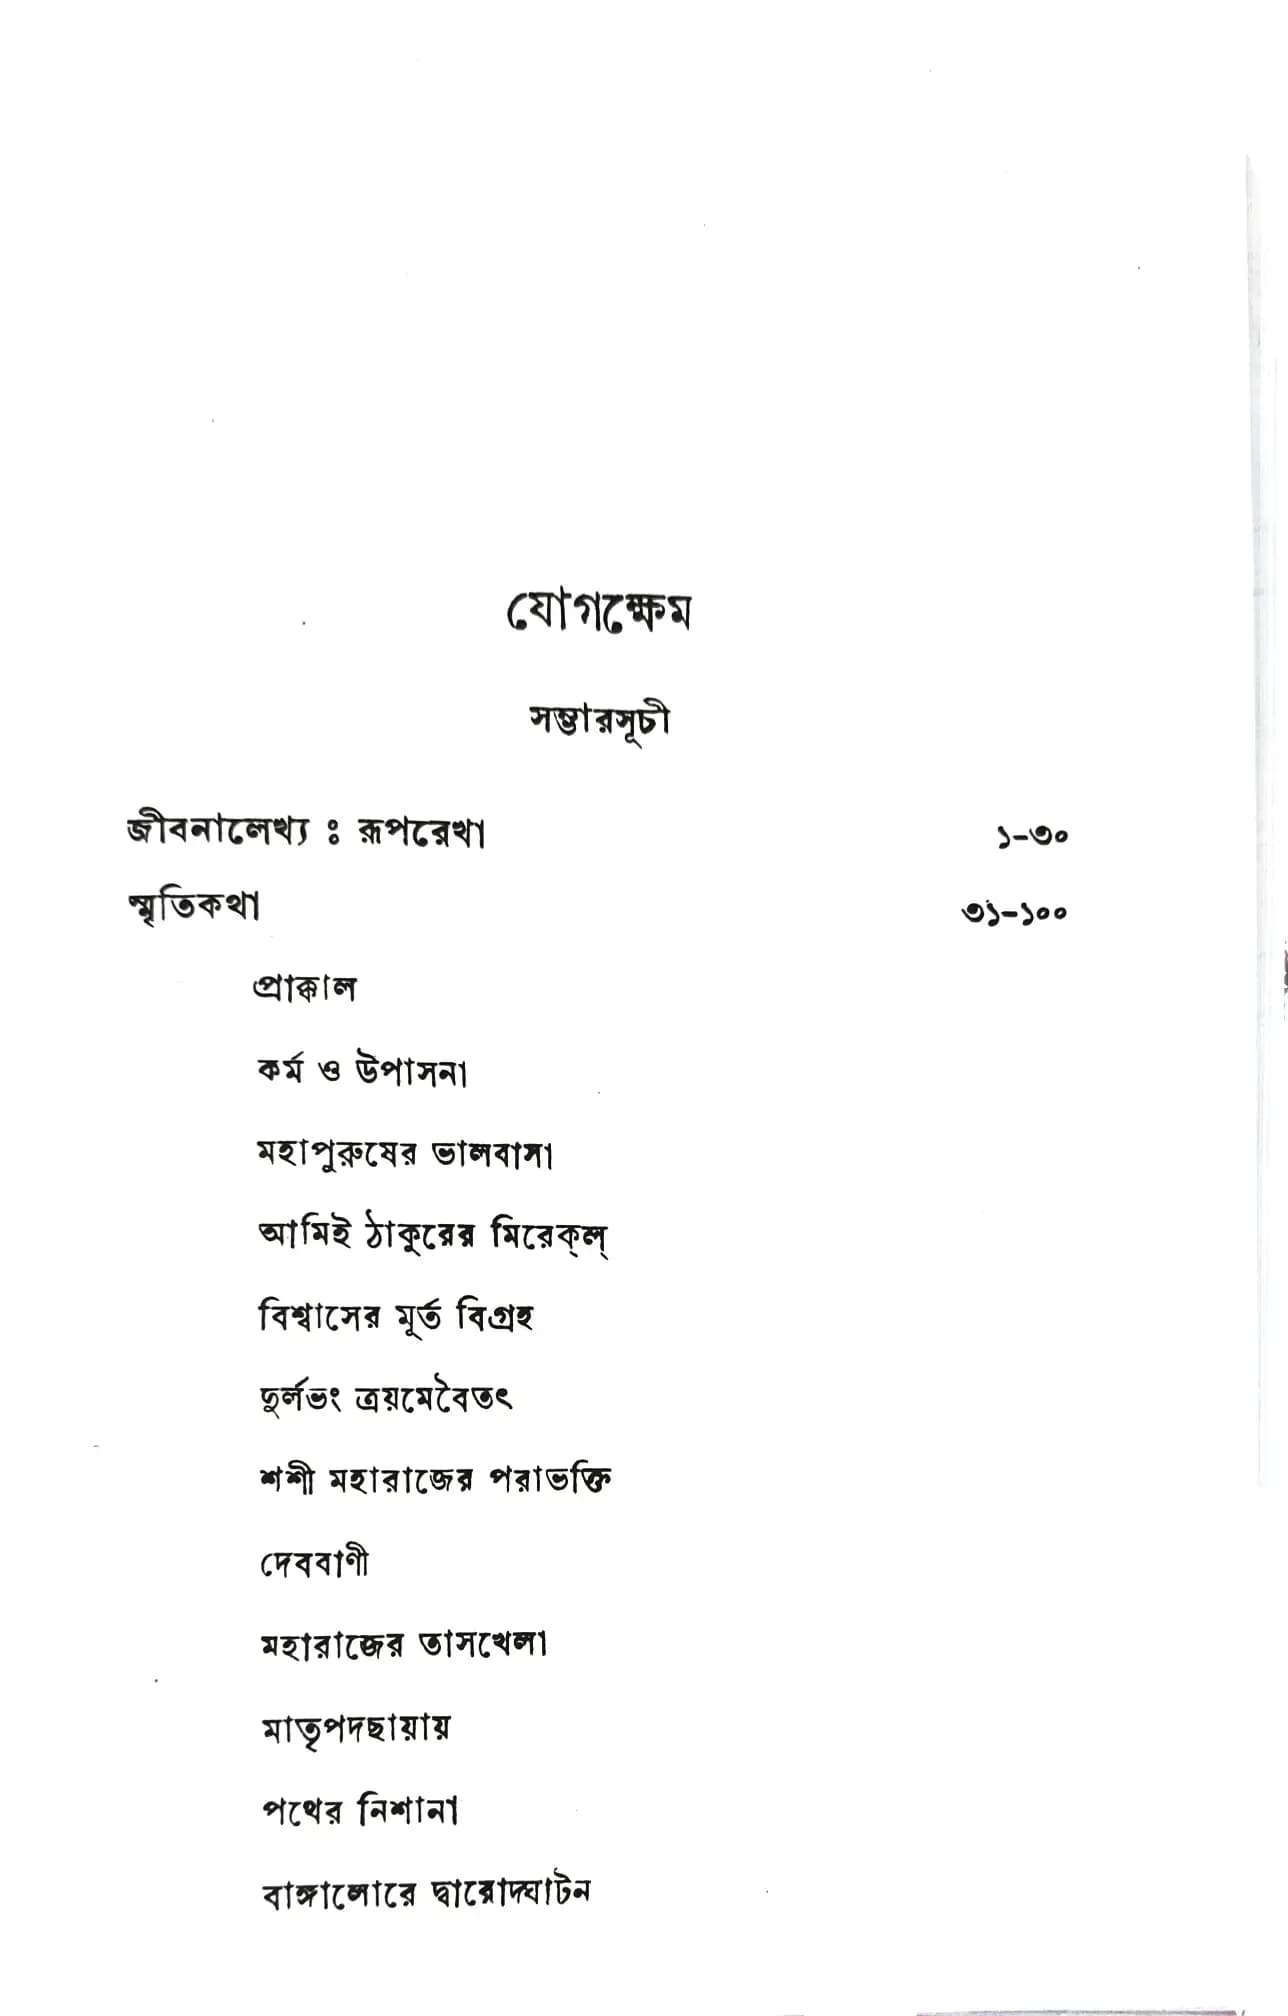 যোগক্ষেম
সম্ভারসূচী
জীবনালেখ্য ঃ রূপরেখা ১-৩০
স্মৃতিকথা ৩১-১০০
প্রাক্কাল
কর্ম ও উপাসনা
মহাপুরুষের ভালবাসা
আমিই ঠাকুরের মিরেক্‌ল্
বিশ্বাসের মূর্ত বিগ্রহ
দুর্লভং ত্রয়মেবৈতৎ
শশী মহারাজের পরাভক্তি
দেববাণী
মহারাজের তাসখেলা
মাতৃপদছায়ায়
পথের নিশানা
বাঙ্গালোরে দ্বারোদ্ঘাটন